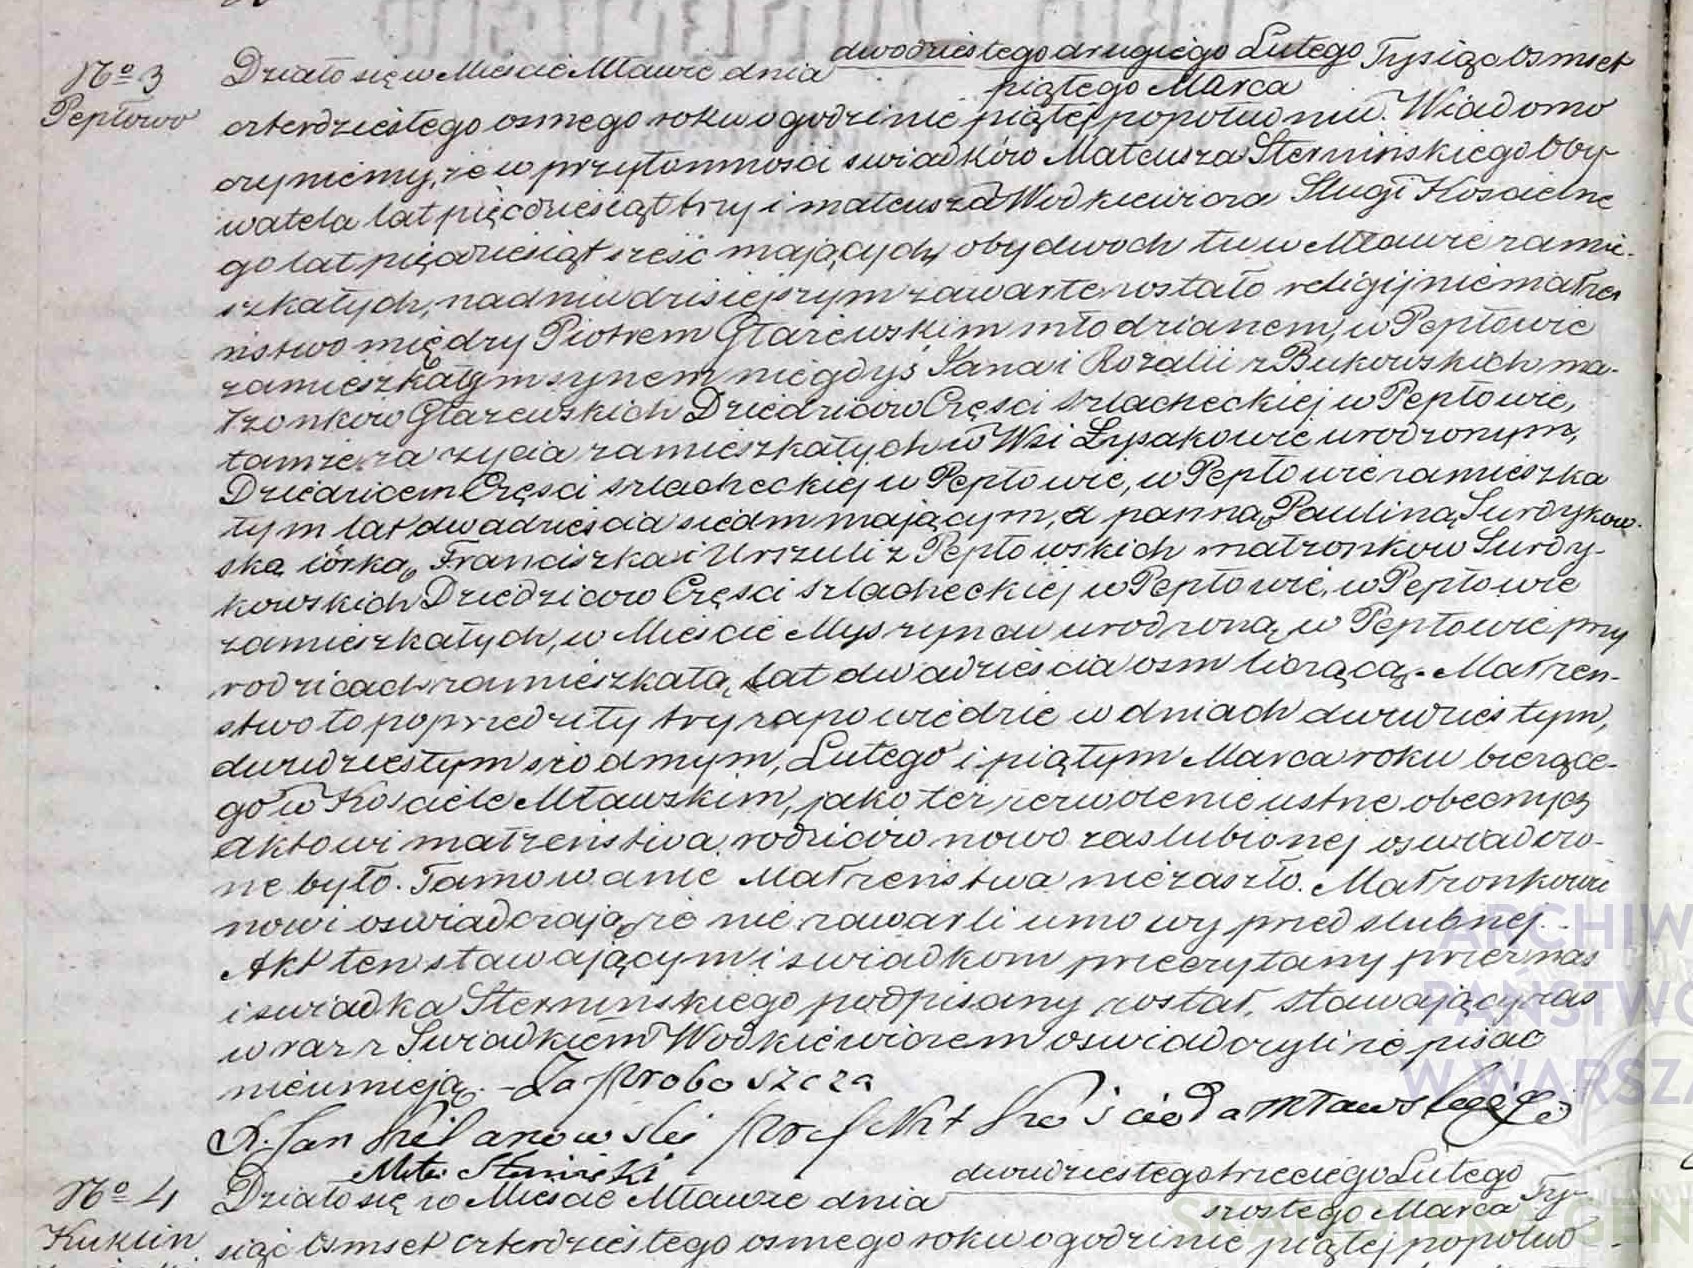 No 3
Pepłowo
Działo się w Mieście Mławie dnia dwodziestego drugiego Lutego Tysiąc Osmset
piątego Marca
czterdziestego osmego roku o godzinie piątej popołudniu. Wiadomo
czyniemy, że w przytomności swiadków Mateusza Sternińskiego Oby-
watela lat pięcdziesiąt trzy i mateusza Wodkiewicza Sługi Koscielne
go lat pięcdziesiąt sześć mających, obydwoch tu w Mławie zamie-
szkałych, na dniu dzisiejszym zawarte zostało religijnie małżeń
ństwo między Piotrem Głażewskim młodzianem, w Pepłowie
zamieszkałym synem niegdyś Jana i Rozalii z Bukowskich ma-
łżonkow Głażewskich Dziedzicow Częsci szlacheckiej w Pepłowie,
tamże za życia zamieszkałych w Wsi Łysakowie urodzonym,
Dziedzicem Częsci szlacheckiej w Pepłowie, w Pepłowie zamieszka
łym lat dwadzieścia siedm mającym, a panną Pauliną Surdykow-
ską córką Franciszka i Urszuli z Pepłowskich małżonkow Surdy-
kowskich Dziedzicow Częsci szlacheckiej w Pepłowie, w Pepłowie
zamieszkałych, w Mieście Myszyncu urodzoną w Pepłowie przy
rodzicach zamieszkałą, Lat dwadzieścia osm liczącą. Małżen-
stwo to poprzedziły trzy zapowiedzie w dniach dwudziestym,
dwudziestym siodmym, Lutego i piątym Marca roku bieżące-
go w Kosciele Mławskim, jako też zezwolenie ustne obecnych
aktowi małżeństwa rodziców nowo zaslubionej oswiadczo-
ne było. Tamowanie Małżeństwa nie zaszło. Małżonkowie
nowi oswiadczają że nie zawarli umowy przedslubnej.
Akt ten stawającym i swiadkom przeczytany przez nas
i swiadka Sternińskiego podpisany został, stawający zas
wraz z Swiadkiem Wodkiewiczem oswiadczyli że pisać
nieumieją. – Za Proboszcza
X. Jan Kościoła Mławskiego
No 4
Kuklin
Działo się w Miescie Mławie dnia dwudziestego trzeciego Lutego Ty-
szostego Marca
siąc Osmset czterdziestego osmego roku o godzinie piątej popołud-
ARCHIW
PAŃSTWO
W WARSZA
SKANOTEKA GEN